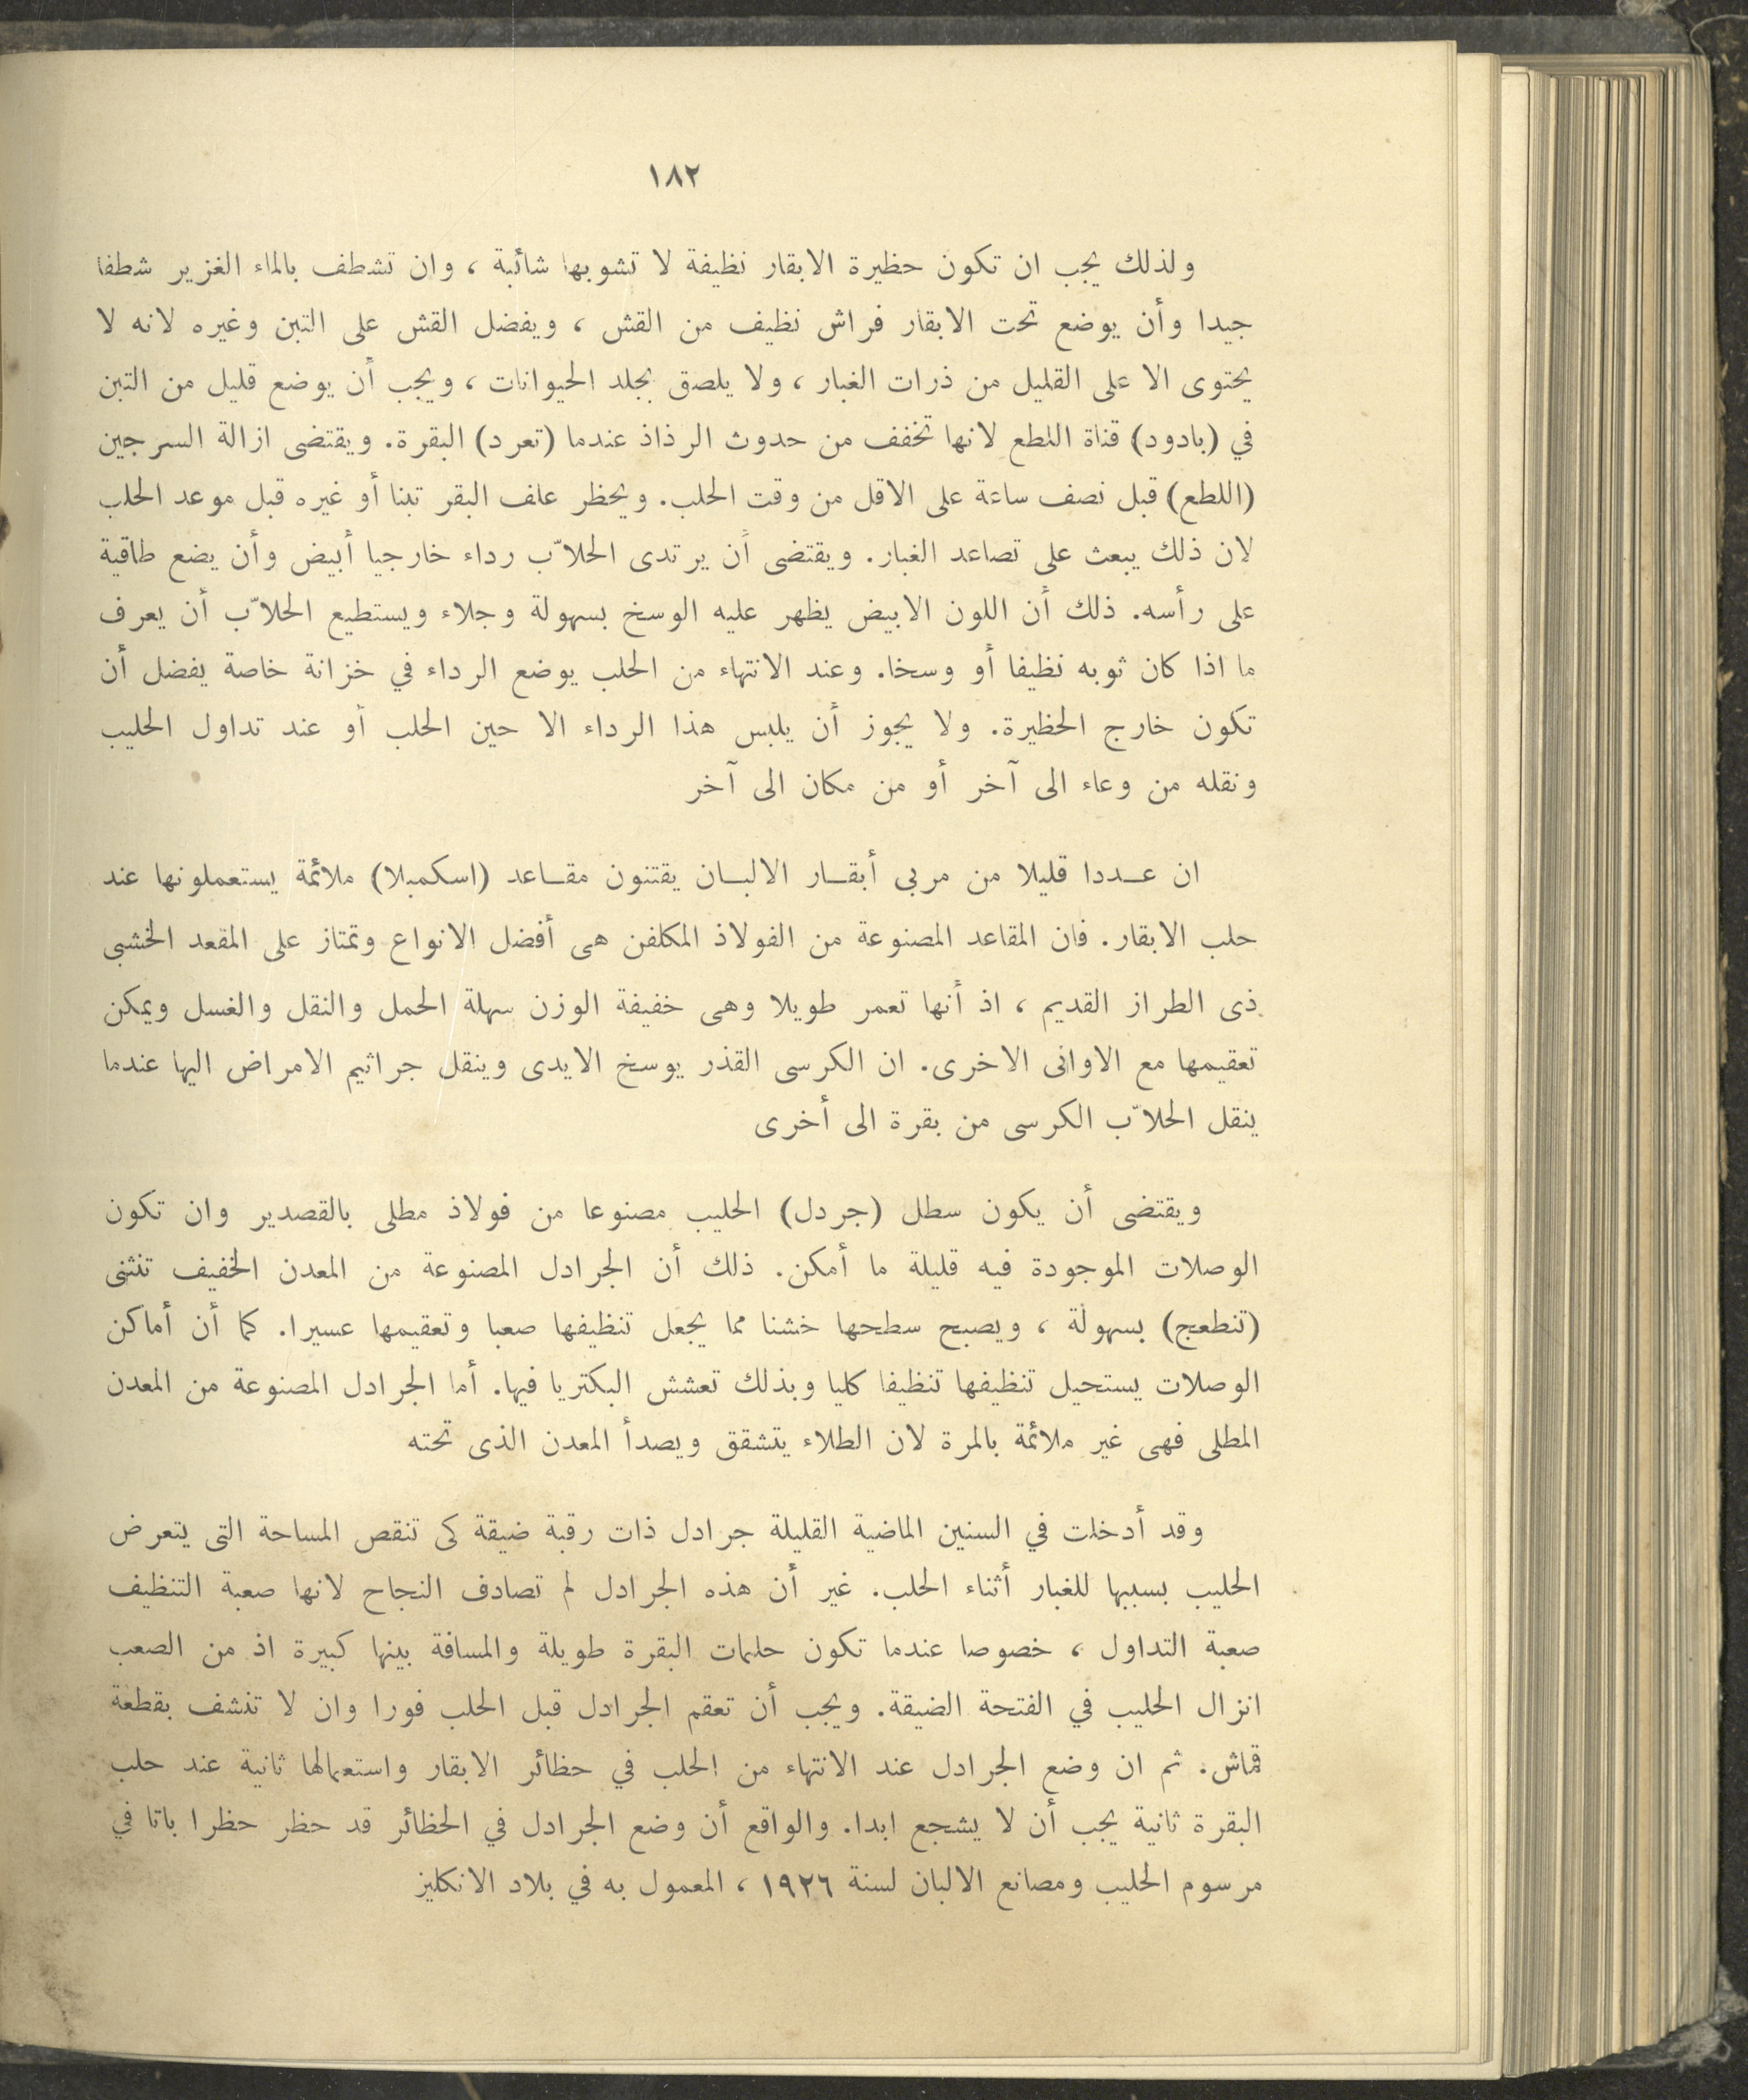 ١٨٢
ولذلك يجب ان تكون حظيرة الابقار نظيفة لا تشوبها شائبة ، وان تشطف بالماء الغزير شطفا
جيدا وأن يوضع تحت الابقار فراش نظيف من القش ، ويفضل القش على التبن وغيره لانه لا
يحتوى الا على القليل من ذرات الغبار ، ولا يلصق بجلد الحيوانات ، ويجب أن يوضع قليل من التبن
في (بادود) قناة اللطع لانها تخفف من حدوث الرذاذ عندما (تعرد) البقرة. ويقتضى ازالة السرجين
(اللطع) قبل نصف ساعة على الاقل من وقت الحلب. ويحظر علف البقر تبنا أو غيره قبل موعد الحلب
لان ذلك يبعث على تصاعد الغبار. ويقتضى أن يرتدى الحلاّب رداء خارجيا أبيض وأن يضع طاقية
على رأسه. ذلك أن اللون الابيض يظهر عليه الوسخ بسهولة وجلاء ويستطيع الحلاّب أن يعرف
ما اذا كان ثوبه نظيفا أو وسخا. وعند الانتهاء من الحلب يوضع الرداء في خزانة خاصة يفضل أن
تكون خارج الحظيرة. ولا يجوز أن يلبس هذا الرداء الا حين الحلب أو عند تداول الحليب
ونقله من وعاء الى آخر أو من مكان الى آخر
ان عددا قليلا من مربى أبقار الالبان يقتنون مقاعد (اسكمبلا) ملائمة يستعملونها عند
حلب الابقار. فان المقاعد المصنوعة من الفولاذ المكلفن هى أفضل الانواع وتمتاز على المقعد الخشبى
ذى الطراز القديم ، اذ أنها تعمر طويلا وهى خفيفة الوزن سهلة الحمل والنقل والغسل ويمكن
تعقيمها مع الاوانى الاخرى. ان الكرسى القذر يوسخ الايدى وينقل جراثيم الامراض اليها عندما
ينقل الحلاّب الكرسى من بقرة الى أخرى
ويقتضى أن يكون سطل (جردل) الحليب مصنوعا من فولاذ مطلى بالقصدير وان تكون
الوصلات الموجودة فيه قليلة ما أمكن. ذلك أن الجرادل المصنوعة من المعدن الخفيف تنثنى
(تنطعج) بسهولة ، ويصبح سطحها خشنا مما يجعل تنظيفها صعبا وتعقيمها عسيرا. كما أن أماكن
الوصلات يستحيل تنظيفها تنظيفا كليا وبذلك تعشش البكتريا فيها. أما الجرادل المصنوعة من المعدن
المطلى فهى غير ملائمة بالمرة لان الطلاء يتشقق ويصدأ المعدن الذى تحته
وقد أدخلت في السنين الماضية القليلة جرادل ذات رقبة ضيقة كى تنقص المساحة التى يتعرض
الحليب بسببها للغبار أثناء الحلب. غير أن هذه الجرادل لم تصادف النجاح لانها صعبة التنظيف
صعبة التداول ، خصوصا عندما تكون حلمات البقرة طويلة والمسافة بينها كبيرة اذ من الصعب
انزال الحليب في الفتحة الضيقة. ويجب أن تعقم الجرادل قبل الحلب فورا وان لا تنشف بقطعة
قماش. ثم ان وضع الجرادل عند الانتهاء من الحلب في حظائر الابقار واستعمالها ثانية عند حلب
البقرة ثانية يجب أن لا يشجع ابدا. والواقع أن وضع الجرادل في الحظائر قد حظر حظرا باتا في
مرسوم الحليب ومصانع الالبان لسنة ١٩٢٦ ، المعمول به في بلاد الانكليز